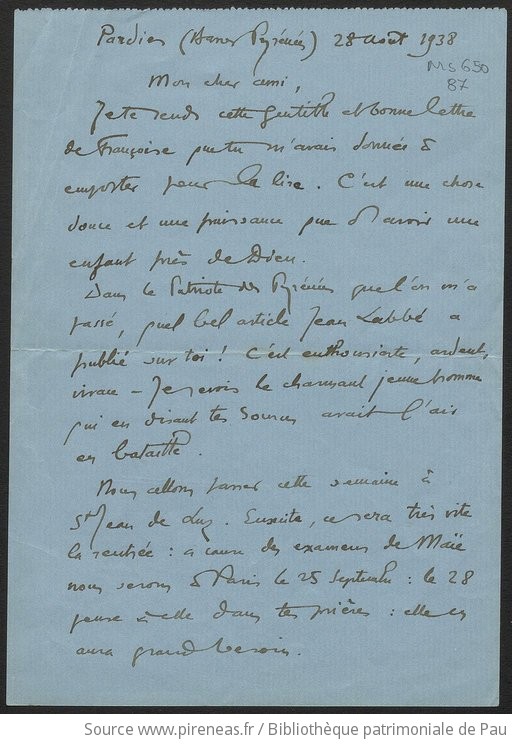 Pardies (Basses Pyrénées) 28 août 1938
Ms 650
87
Mon cher ami,
Je te rends cette gentille et bonne lettre
de Françoise que tu m'avais donnée à
emporter pour la lire. C'est une chose
douce et une puissance que d'avoir une
enfant près de Dieu.
Dans le Patriote des Pyrénées que l'on m'a
passé, quel bel article Jean Labbé a
publié sur toi ! C'est enthousiaste, ardent,
vivant – Je revois le charmant jeune homme
qui en disant tes Sources avait l'air
en bataille.
Nous allons passer cette semaine à
St Jean de Luz. Ensuite, ce sera très vite
la rentrée : à cause des examens de Maïe
nous serons à Paris le 25 septembre : le 28
pense à elle dans tes prières : elle en
aura grand besoin.
Source www.pireneas.fr / Bibliothèque patrimoniale de Pau